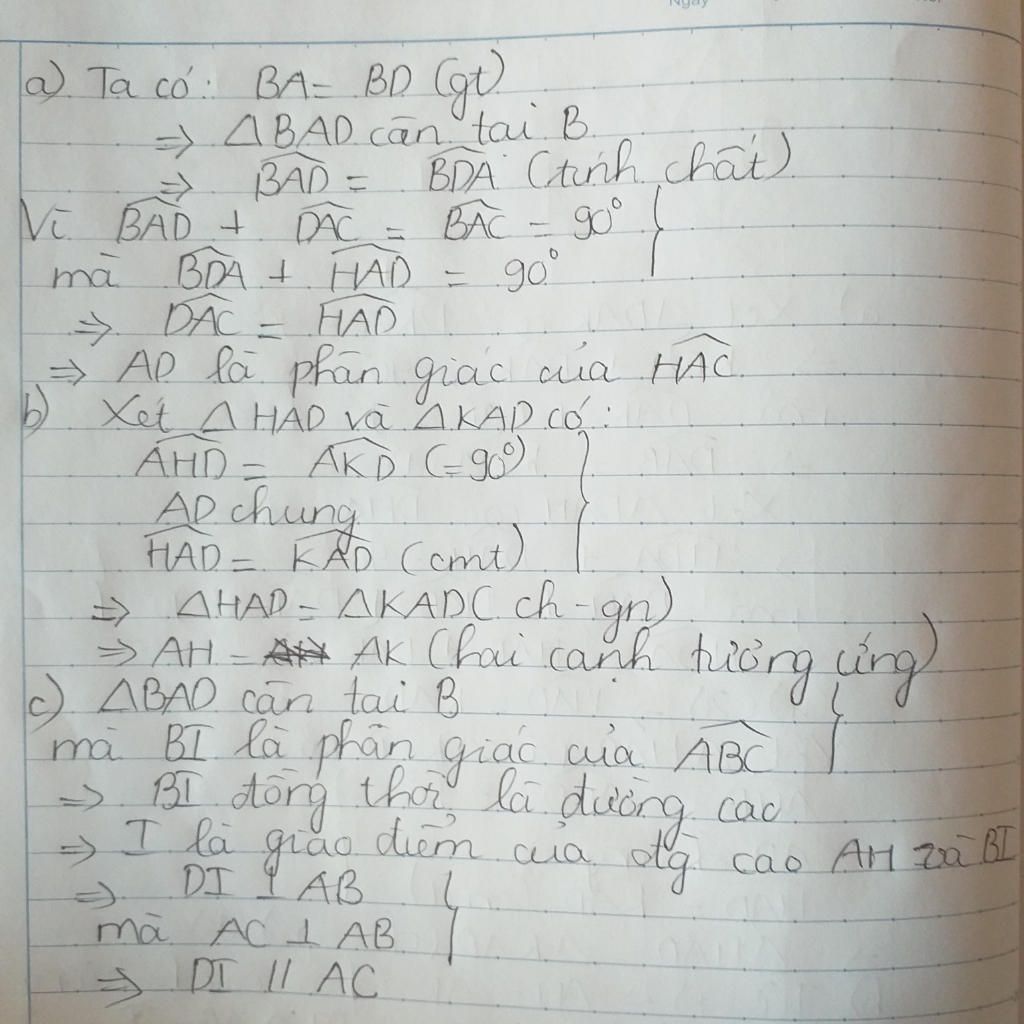 Ngày
a) Ta có: BA = BD (gt)
=> △BAD cân tại B
=> \widehat{BAD} = \widehat{BDA} (tính chất)
Vì \widehat{BAD} + \widehat{DAC} = \widehat{BAC} = 90° }
mà \widehat{BDA} + \widehat{HAD} = 90°
=> \widehat{DAC} = \widehat{HAD}
=> AD là phân giác của \widehat{HAC}
b) Xét △HAD và △KAD có:
\widehat{AHD} = \widehat{AKD} (=90°) }
AD chung
\widehat{HAD} = \widehat{KAD} (cmt)
=> △HAD = △KAD (ch-gn)
=> AH = AK (hai cạnh tương ứng)
c) △BAD cân tại B }
mà BI là phân giác của \widehat{ABC}
=> BI đồng thời là đường cao
=> I là giao điểm của đg cao AH và BI
=> DI ⊥ AB }
mà AC ⊥ AB
=> DI // AC